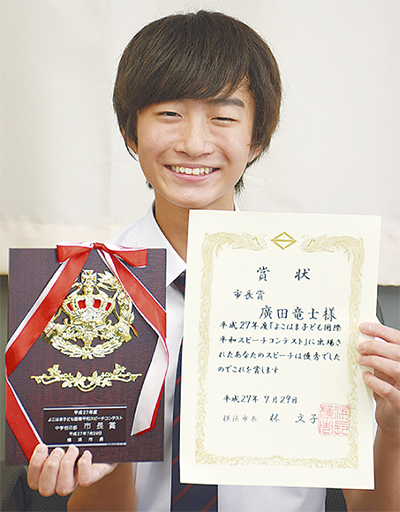 賞状
市長賞
廣田竜士様
平成27年度「よこはま子ども国際
平和スピーチコンテスト」に出場さ
れたあなたのスピーチは優秀でした
のでこれを賞します
平成27年7月29日
横浜市長 林 文子
平成27年度
よこはま子ども国際平和スピーチコンテスト
中学校の部 市長賞
平成27年7月29日
横浜市